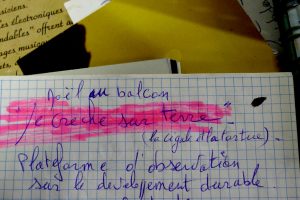 siciens.
les électroniques
ndables" offrent a
ages musica
Noël au balcon
"Je crèche sur terre"
(la cigale et la tortue).
Plateforme d'observation
sur le développement durable.